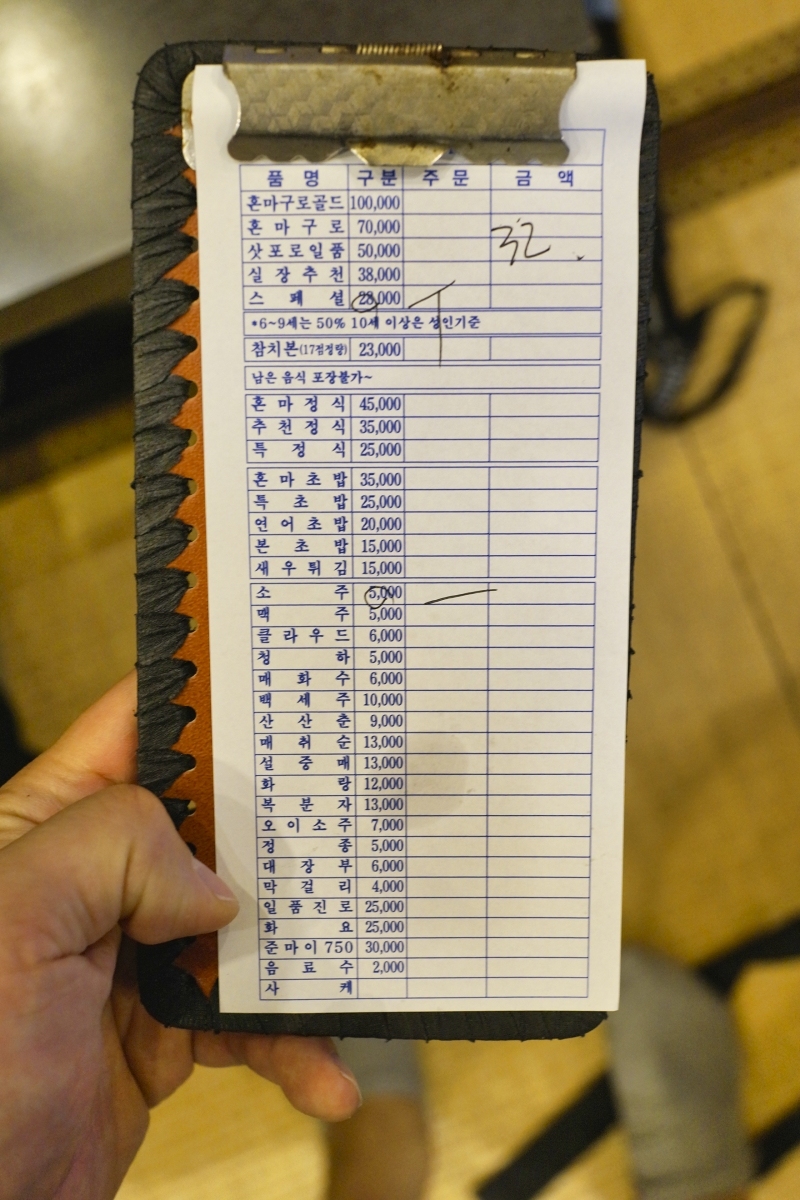 품 명 구분 주 문 금 액
혼마구로골드 100,000
혼 마 구 로 70,000
삿포로일품 50,000
실 장 추 천 38,000
스 페 셜 28,000
*6~9세는 50% 10세 이상은 성인기준
참치본(17점정량) 23,000
남은 음식 포장불가~
혼 마 정 식 45,000
추 천 정 식 35,000
특 정 식 25,000
혼 마 초 밥 35,000
특 초 밥 25,000
연 어 초 밥 20,000
본 초 밥 15,000
새 우 튀 김 15,000
소 주 5,000
맥 주 5,000
클 라 우 드 6,000
청 하 5,000
매 화 수 6,000
백 세 주 10,000
산 산 춘 9,000
매 취 순 13,000
설 중 매 13,000
화 랑 12,000
복 분 자 13,000
오 이 소 주 7,000
정 종 5,000
대 장 부 6,000
막 걸 리 4,000
일 품 진 로 25,000
화 요 25,000
준 마 이 750 30,000
음 료 수 2,000
사 케